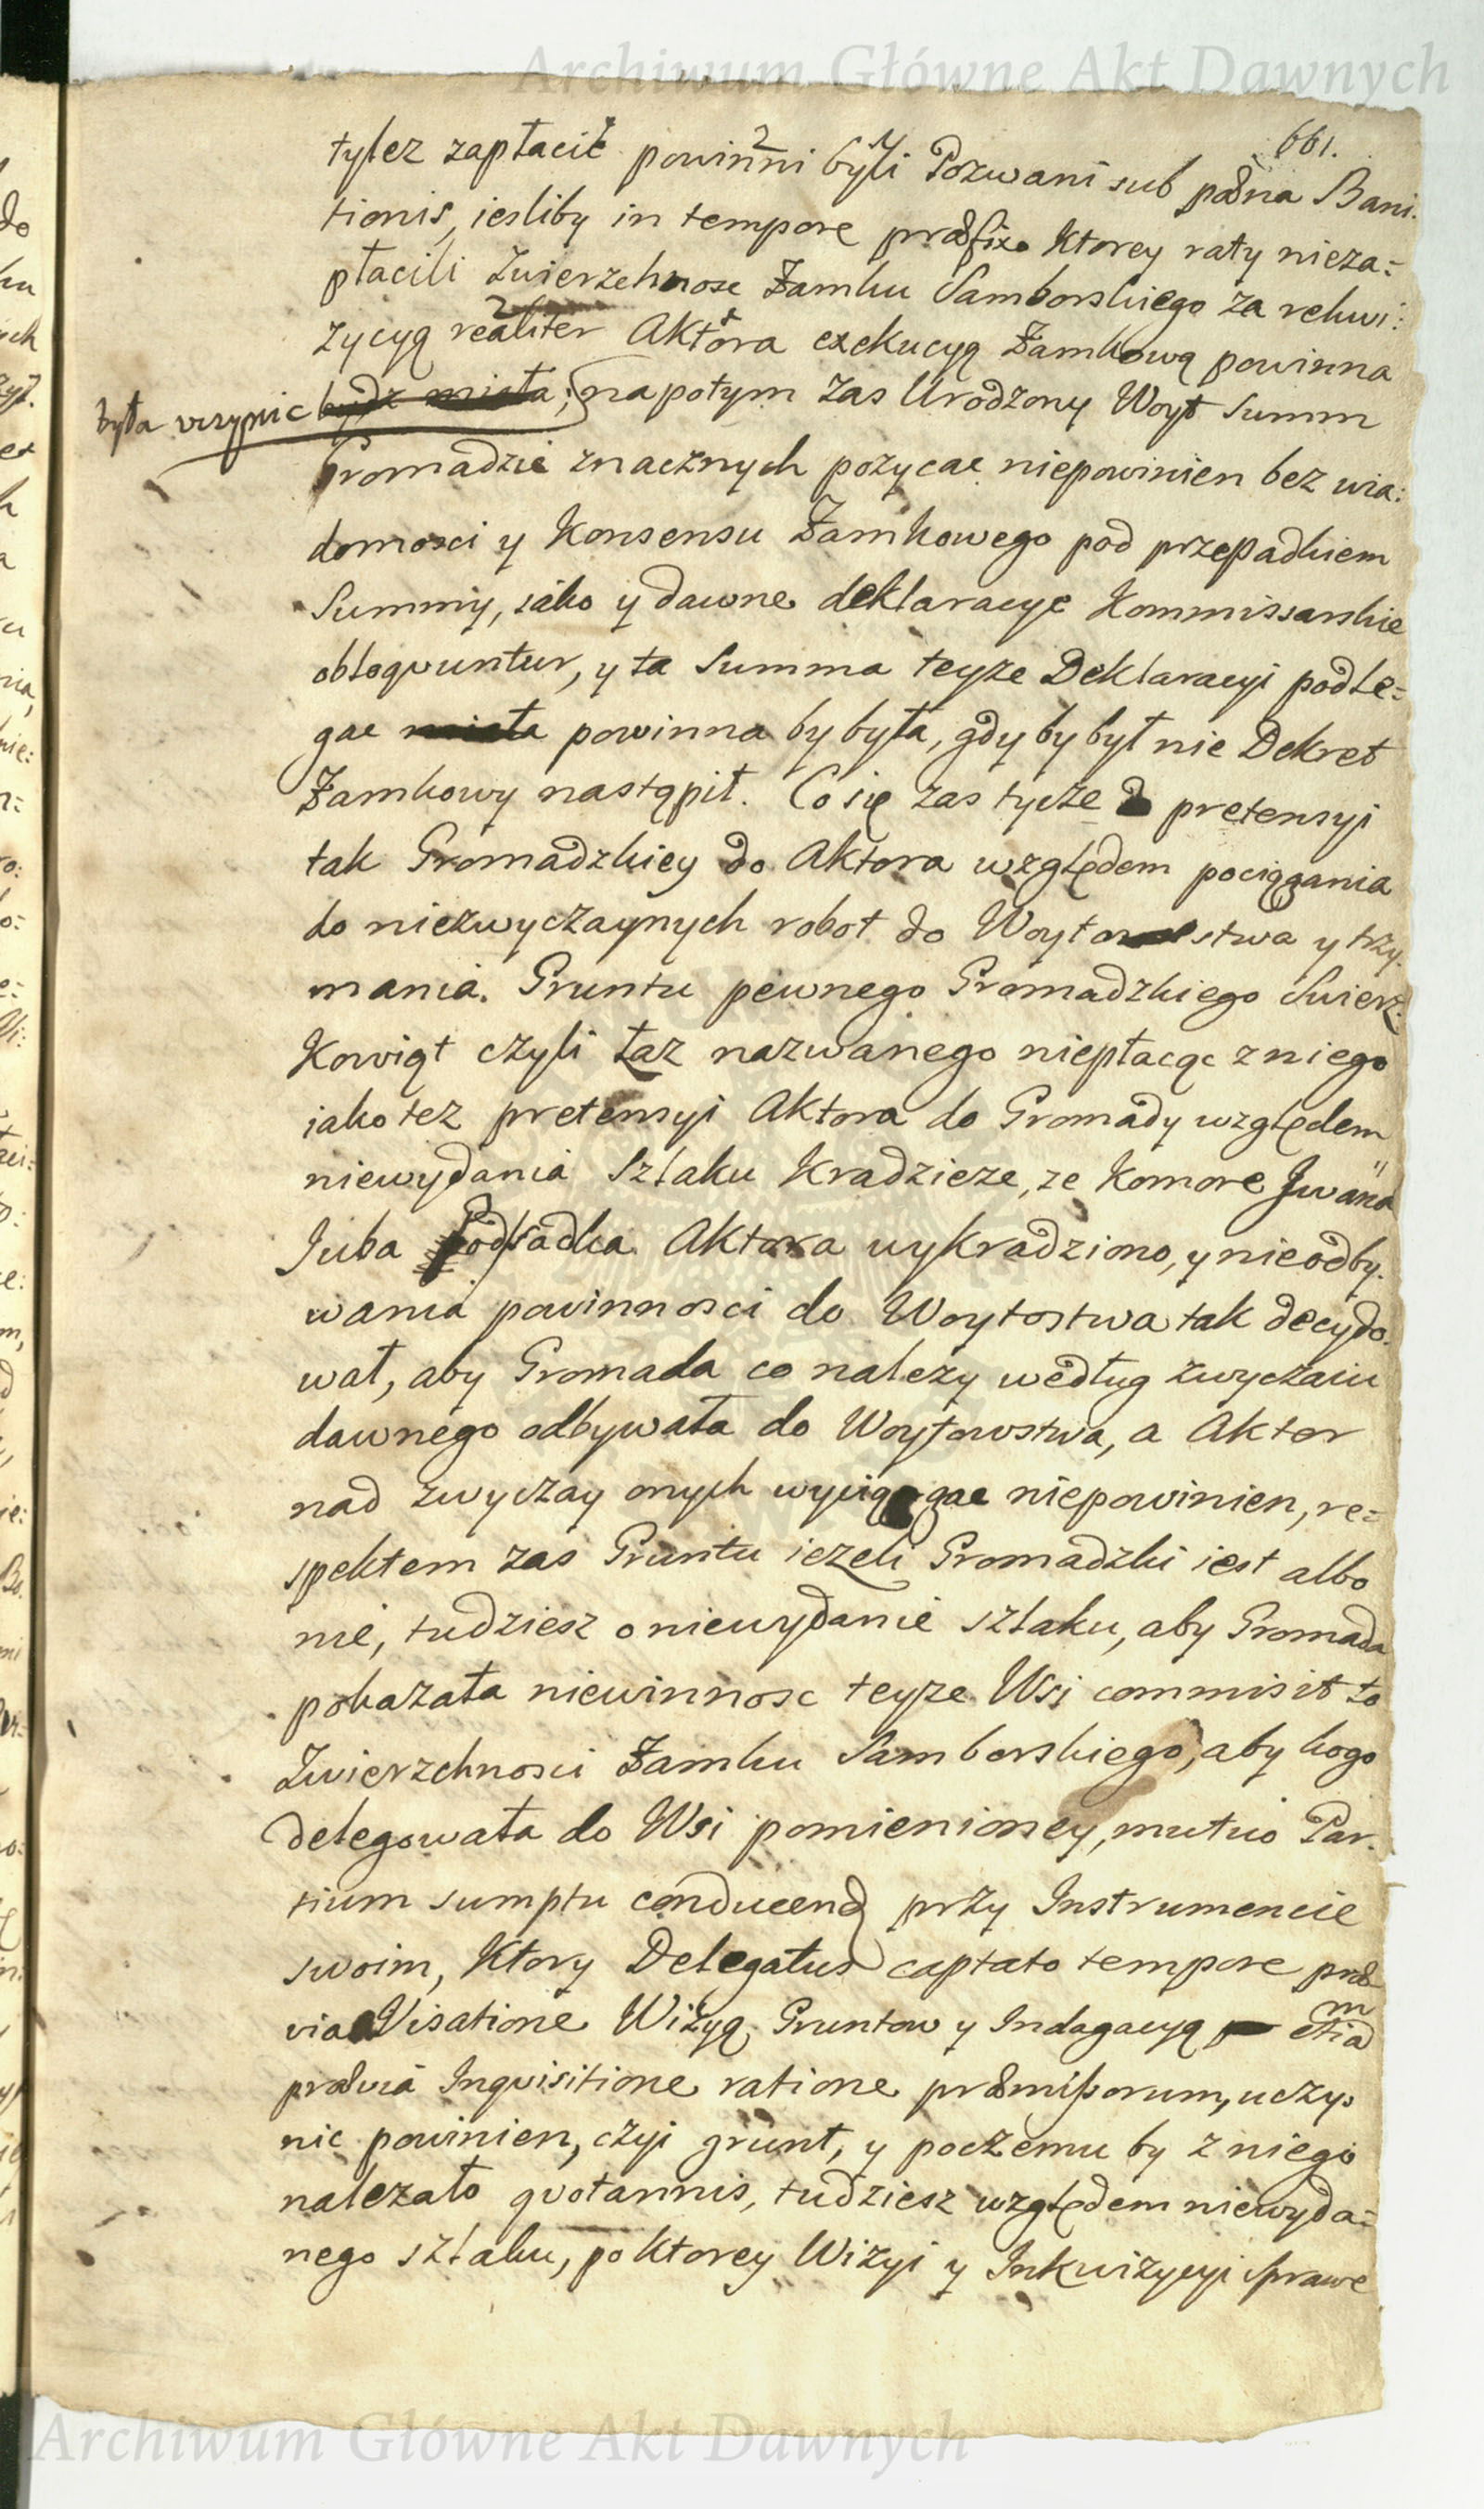 Archiwum Główne Akt Dawnych
661.
tylez zapłacić powinni byli Pozwani sub pæna Bani-
tionis, iesliby in tempore præfixo Ktorey raty nieza=
płacili Zwierzchnosc Zamku Samborskiego za rekwi:
zycyą realiter Aktora exekucyą Zamkową powinna
była uczynic będz miała; napotym zas Urodzony Woyt Summ
Gromadzie znacznych pozycac niepowinien bez wia:
domosci y Konsensu Zamkowego pod przepadkiem
Summy, iako y dawne deklaracye Kommissarskie
obloqvuntur, y ta Summa teyze Deklaracyi podle=
gac miała powinna by była, gdy by był nie Dekret
Zamkowy nastąpił. Co się zas tycze pretensyi
tak Gromadzkiey do Aktora względem pociągania
do niezwyczaynych robot do Woytostwa y trzy-
mania Gruntu pewnego Gromadzkiego Swierz-
Kowiąt czyli Łaz nazwanego niepłacąc z niego
iako tez pretensyi Aktora do Gromady względem
niewydania Szlaku Kradzieze, ze Komore Jwana
Juba Podsadka Aktora wykradziono, y nieodby-
wania powinnosci do Woytostwa tak decydo-
wał, aby Gromada co nalezy według zwyczaiu
dawnego odbywała do Woytowstwa, a Aktor
nad zwyczay onych wyciągac niepowinien, re=
spektem zas Gruntu iezeli Gromadzki iest albo
nie, tudziesz o niewydanie szlaku, aby Gromada
pokazała niewinnosc teyze Wsi commisit to
Zwierzchnosci Zamku Samborskiego, aby kogo
delegowała do Wsi pomienioney, mutuo Par-
tium sumptu conducend przy Instrumencie
swoim, Ktory Delegatus captato tempore præ
via Visatione Wizyą Gruntow y Indagacyą etiam
prævia Inqvisitione ratione præmissorum, uczy-
nic powinien, czyi grunt, y poczemu by z niego
nalezało qvotannis, tudziesz względem niewyda=
nego szlaku, po Ktorey Wizyi y Inkwizycyi Sprawe
Archiwum Główne Akt Dawnych